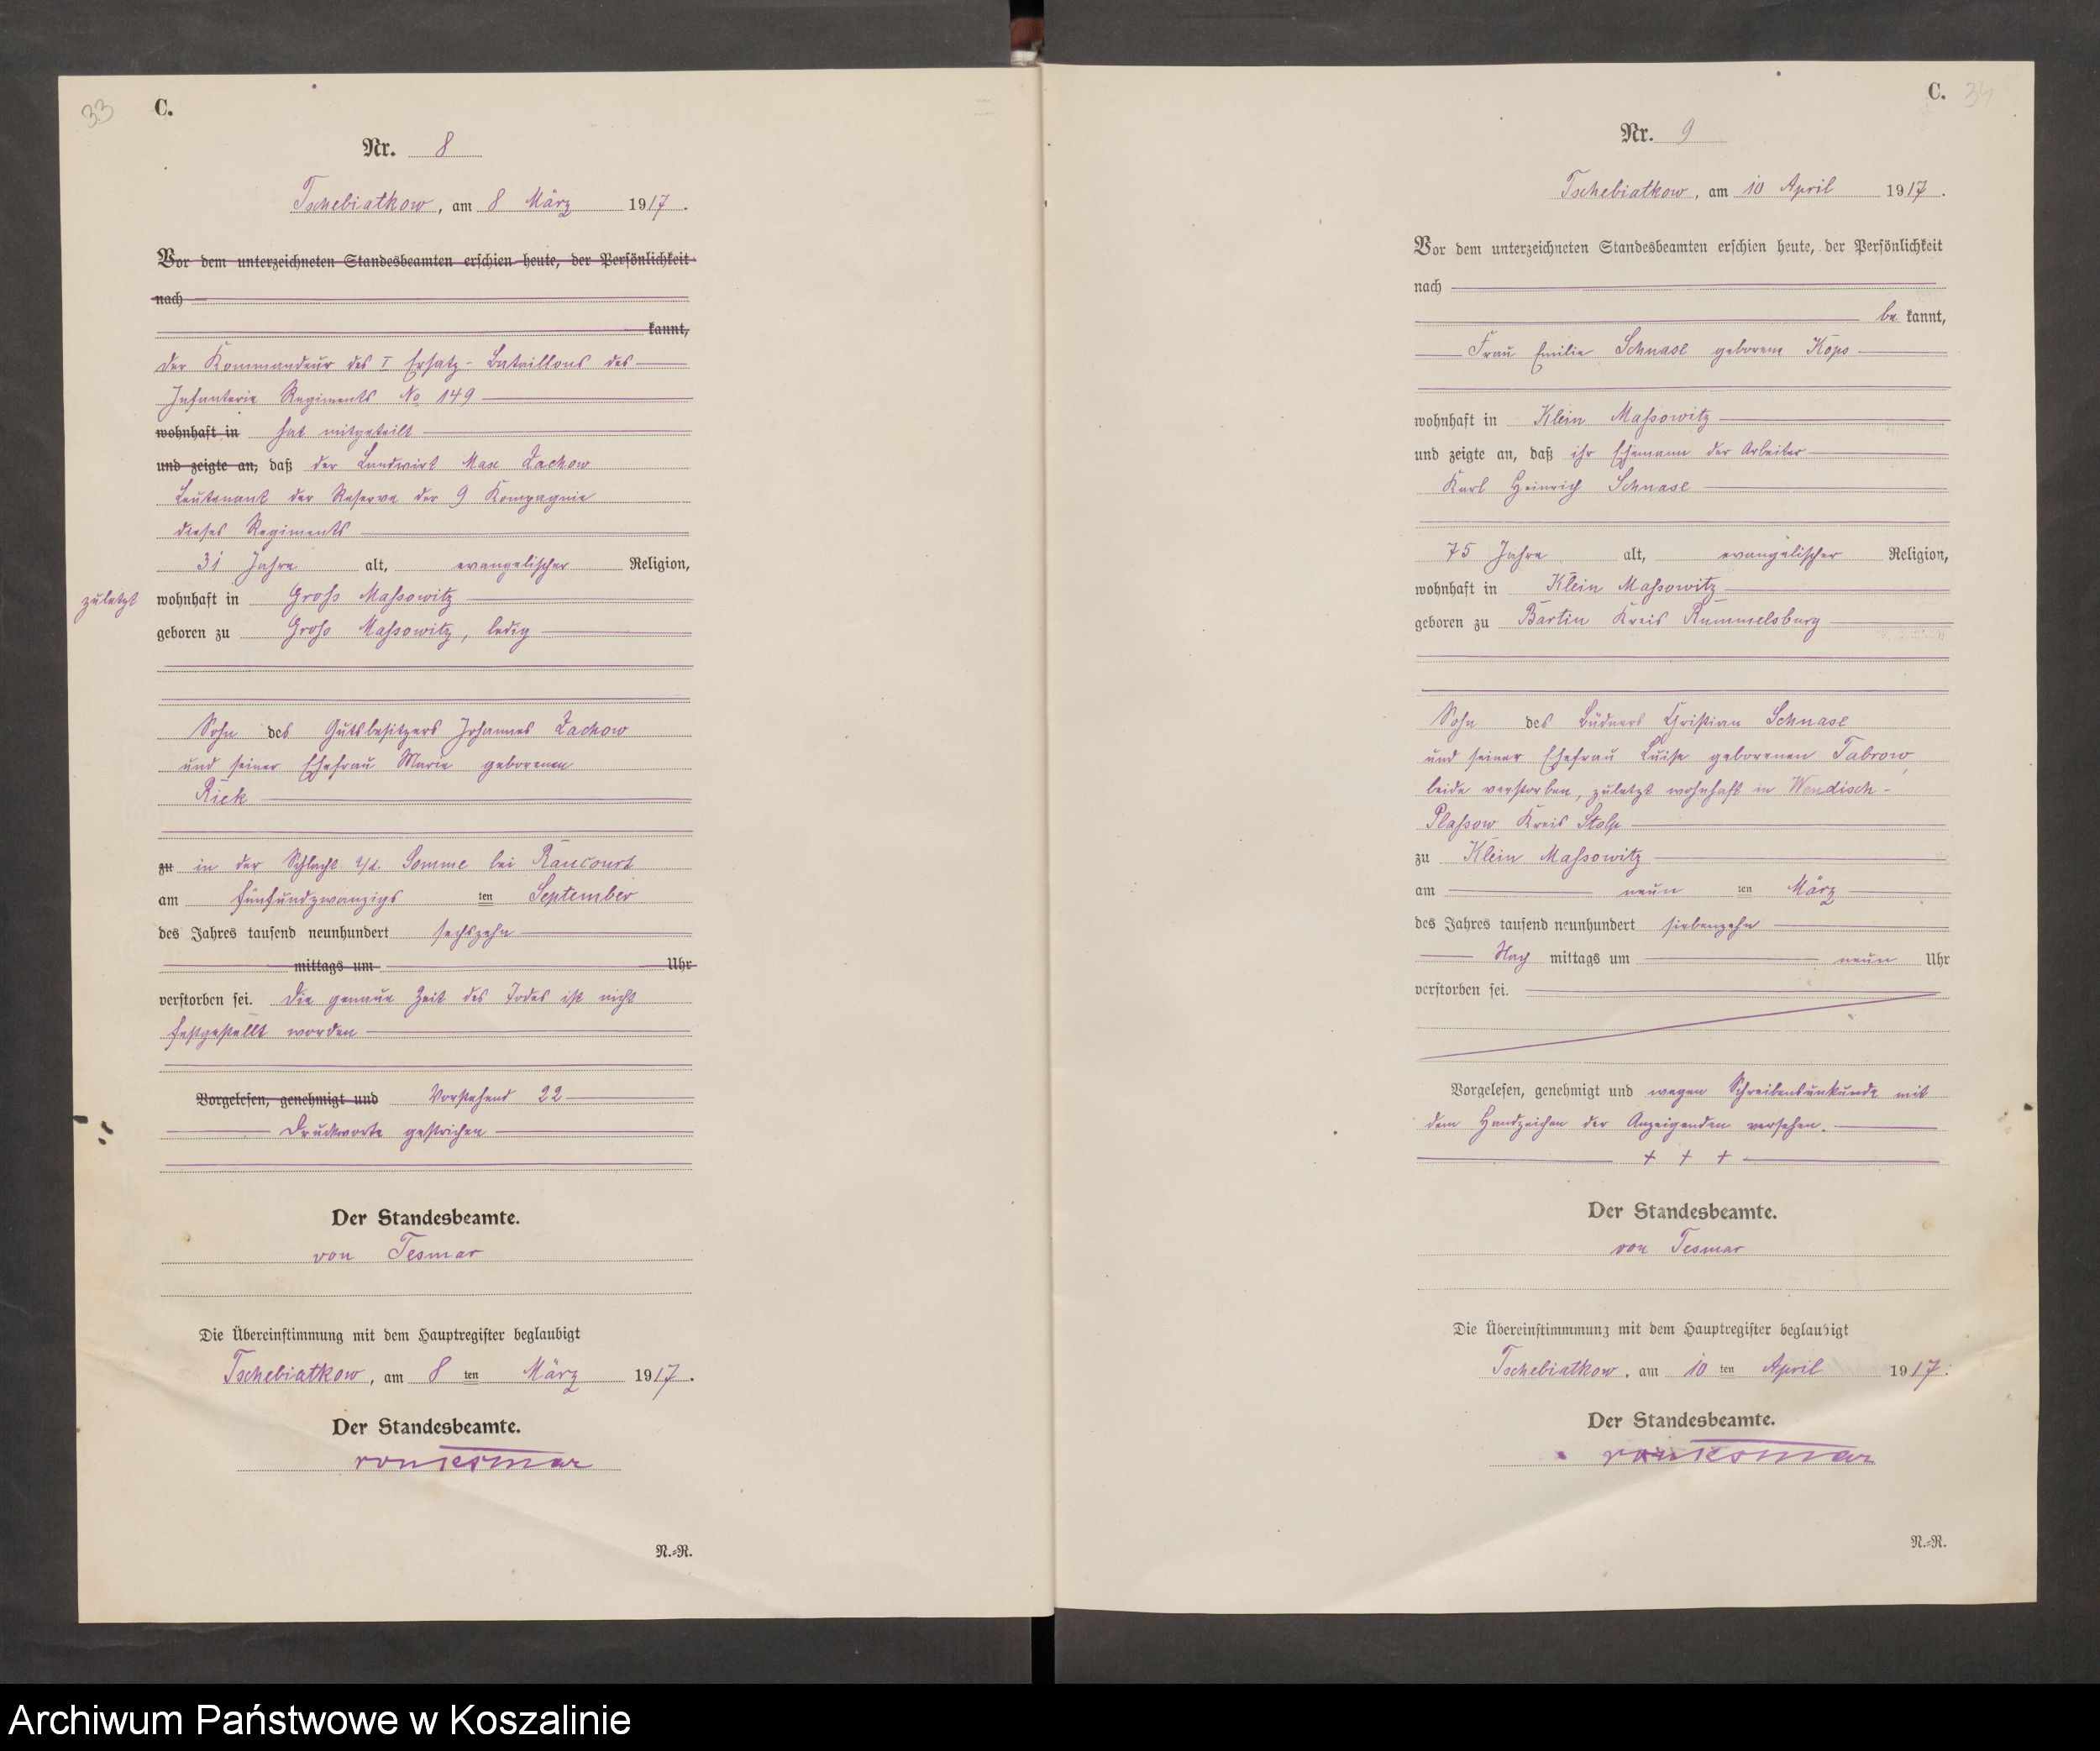 33
C.
Nr. 8
Tschebiatkow, am 8 März 1917.
Vor dem unterzeichneten Standesbeamten erschien heute, der Persönlichkeit
nach
kannt,
der Kommandeur des I Ersatz-Bataillons des
Infanterie Regiments No 149
wohnhaft in hat mitgeteilt
und zeigte an, daß der Landwirt Max Zachow
Leutenant der Reserve der 9 Kompagnie
dieses Regiments
31 Jahre alt, evangelischer Religion,
zuletzt wohnhaft in Groß Massowitz
geboren zu Groß Massowitz, ledig
Sohn des Gutsbesitzers Johannes Zachow
und seiner Ehefrau Marie geborenen
Rick
zu in der Schlacht a/d. Somme bei Rancourt
am fünfundzwanzigs ten September
des Jahres tausend neunhundert sechszehn
mittags um Uhr
verstorben sei. Die genaue Zeit des Todes ist nicht
festgestellt worden
Vorgelesen, genehmigt und Vorstehend 22
Druckworte gestrichen
Der Standesbeamte.
von Tesmar
Die Übereinstimmung mit dem Hauptregister beglaubigt
Tschebiatkow, am 8 ten März 1917.
Der Standesbeamte.
von Tesmar
N.=R.
C. 34
Nr. 9
Tschebiatkow, am 10 April 1917.
Vor dem unterzeichneten Standesbeamten erschien heute, der Persönlichkeit
nach
be kannt,
Frau Emilie Schnase geborene Kops
wohnhaft in Klein Massowitz
und zeigte an, daß ihr Ehemann der Arbeiter
Karl Heinrich Schnase
75 Jahre alt, evangelischer Religion,
wohnhaft in Klein Massowitz
geboren zu Bartin Kreis Rummelsburg
Sohn des Büdners Christian Schnase
und seiner Ehefrau Luise geborenen Tabrow,
beide verstorben, zuletzt wohnhaft in Wendisch-
Plassow Kreis Stolp
zu Klein Massowitz
am neun ten März
des Jahres tausend neunhundert siebenzehn
Nach mittags um neun Uhr
verstorben sei.
Vorgelesen, genehmigt und wegen Schreibensunkunde mit
dem Handzeichen der Anzeigenden versehen.
+ + +
Der Standesbeamte.
von Tesmar
Die Übereinstimmung mit dem Hauptregister beglaubigt
Tschebiatkow, am 10 ten April 1917.
Der Standesbeamte.
von Tesmar
N.=R.
Archiwum Państwowe w Koszalinie